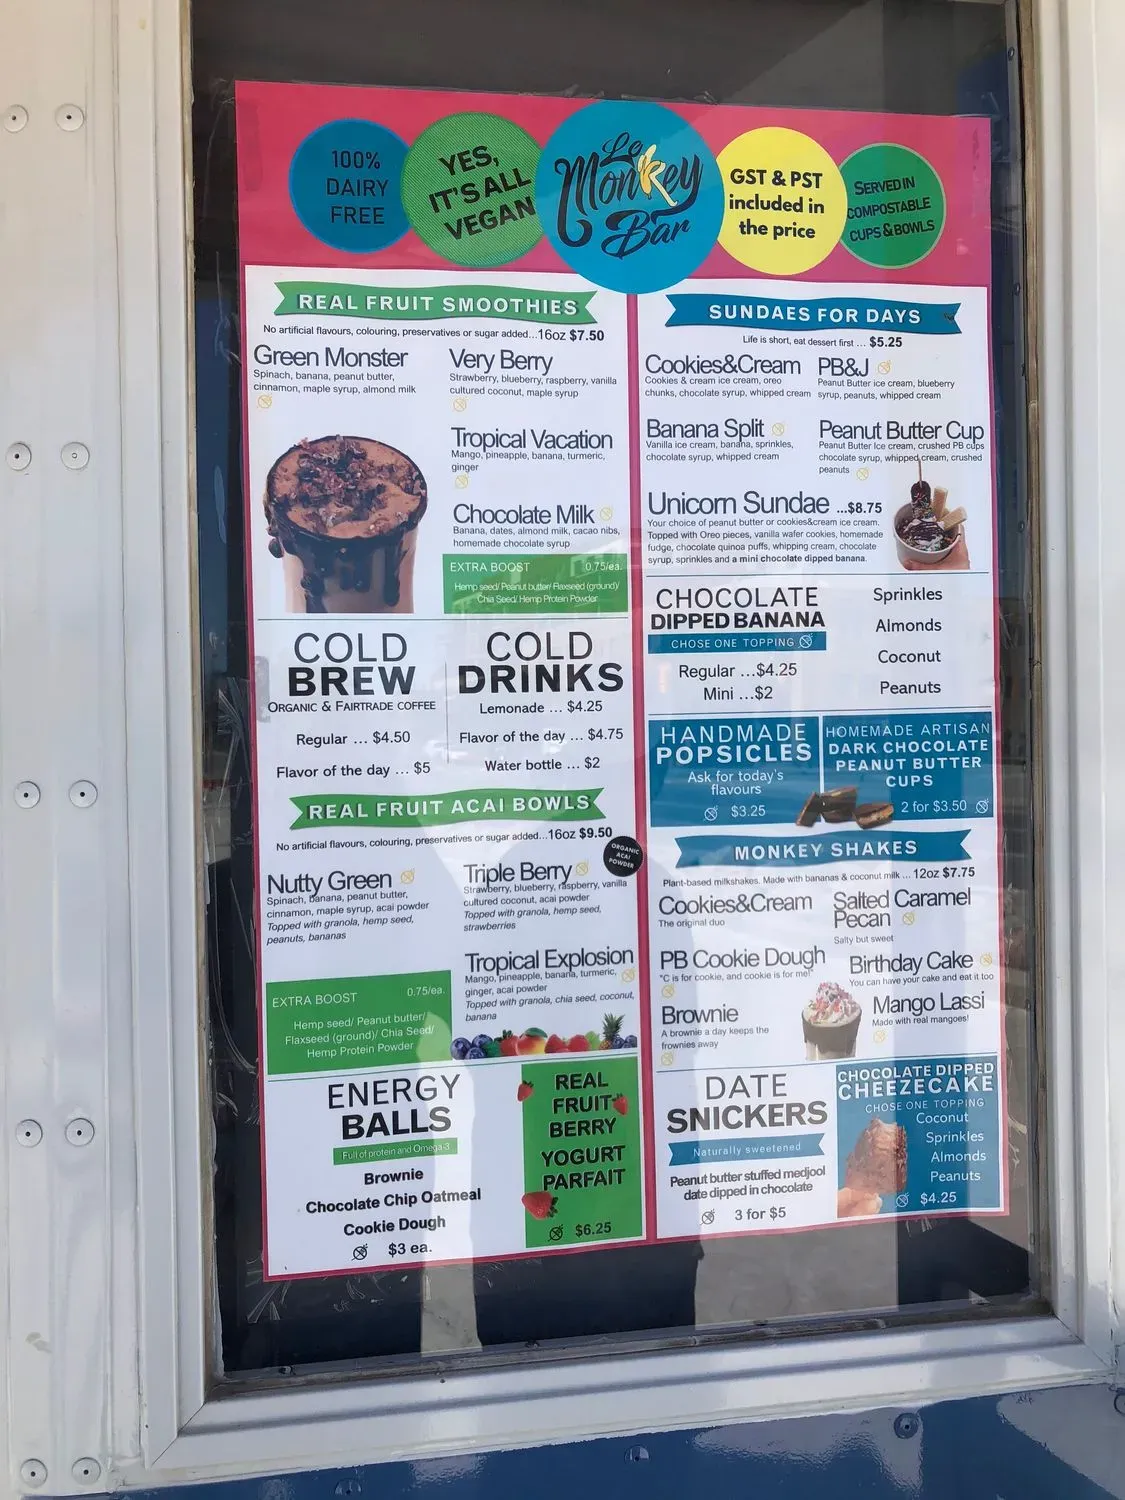 100%
DAIRY
FREE
YES,
IT'S ALL
VEGAN
Le
Monkey
Bar
GST & PST
included in
the price
SERVED IN
COMPOSTABLE
CUPS & BOWLS
REAL FRUIT SMOOTHIES
No artificial flavours, colouring, preservatives or sugar added...16oz $7.50
Green Monster
Spinach, banana, peanut butter,
cinnamon, maple syrup, almond milk
Very Berry
Strawberry, blueberry, raspberry, vanilla
cultured coconut, maple syrup
Tropical Vacation
Mango, pineapple, banana, turmeric,
ginger
Chocolate Milk
Banana, dates, almond milk, cacao nibs,
homemade chocolate syrup
EXTRA BOOST 0.75/ea.
Hemp seed/ Peanut butter/ Flaxseed (ground)/
Chia Seed/ Hemp Protein Powder
COLD
BREW
ORGANIC & FAIRTRADE COFFEE
Regular ... $4.50
Flavor of the day ... $5
COLD
DRINKS
Lemonade ... $4.25
Flavor of the day ... $4.75
Water bottle ... $2
REAL FRUIT ACAI BOWLS
No artificial flavours, colouring, preservatives or sugar added...16oz $9.50
ORGANIC
ACAI
POWDER
Nutty Green
Spinach, banana, peanut butter,
cinnamon, maple syrup, acai powder
Topped with granola, hemp seed,
peanuts, bananas
Triple Berry
Strawberry, blueberry, raspberry, vanilla
cultured coconut, acai powder
Topped with granola, hemp seed,
strawberries
Tropical Explosion
Mango, pineapple, banana, turmeric,
ginger, acai powder
Topped with granola, chia seed, coconut,
banana
EXTRA BOOST 0.75/ea.
Hemp seed/ Peanut butter/
Flaxseed (ground)/ Chia Seed/
Hemp Protein Powder
ENERGY
BALLS
Full of protein and Omega-3
Brownie
Chocolate Chip Oatmeal
Cookie Dough
$3 ea.
REAL
FRUIT
BERRY
YOGURT
PARFAIT
$6.25
SUNDAES FOR DAYS
Life is short, eat dessert first ... $5.25
Cookies&Cream
Cookies & cream ice cream, oreo
chunks, chocolate syrup, whipped cream
PB&J
Peanut Butter ice cream, blueberry
syrup, peanuts, whipped cream
Banana Split
Vanilla ice cream, banana, sprinkles,
chocolate syrup, whipped cream
Peanut Butter Cup
Peanut Butter Ice cream, crushed PB cups
chocolate syrup, whipped cream, crushed
peanuts
Unicorn Sundae ...$8.75
Your choice of peanut butter or cookies&cream ice cream.
Topped with Oreo pieces, vanilla wafer cookies, homemade
fudge, chocolate quinoa puffs, whipping cream, chocolate
syrup, sprinkles and a mini chocolate dipped banana.
CHOCOLATE
DIPPED BANANA
CHOSE ONE TOPPING
Regular ...$4.25
Mini ...$2
Sprinkles
Almonds
Coconut
Peanuts
HANDMADE
POPSICLES
Ask for today's
flavours
$3.25
HOMEMADE ARTISAN
DARK CHOCOLATE
PEANUT BUTTER
CUPS
2 for $3.50
MONKEY SHAKES
Plant-based milkshakes. Made with bananas & coconut milk ... 12oz $7.75
Cookies&Cream
The original duo
Salted Caramel
Pecan
Salty but sweet
PB Cookie Dough
"C is for cookie, and cookie is for me!"
Birthday Cake
You can have your cake and eat it too
Brownie
A brownie a day keeps the
frownies away
Mango Lassi
Made with real mangoes!
DATE
SNICKERS
Naturally sweetened
Peanut butter stuffed medjool
date dipped in chocolate
3 for $5
CHOCOLATE DIPPED
CHEEZECAKE
CHOSE ONE TOPPING
Coconut
Sprinkles
Almonds
Peanuts
$4.25